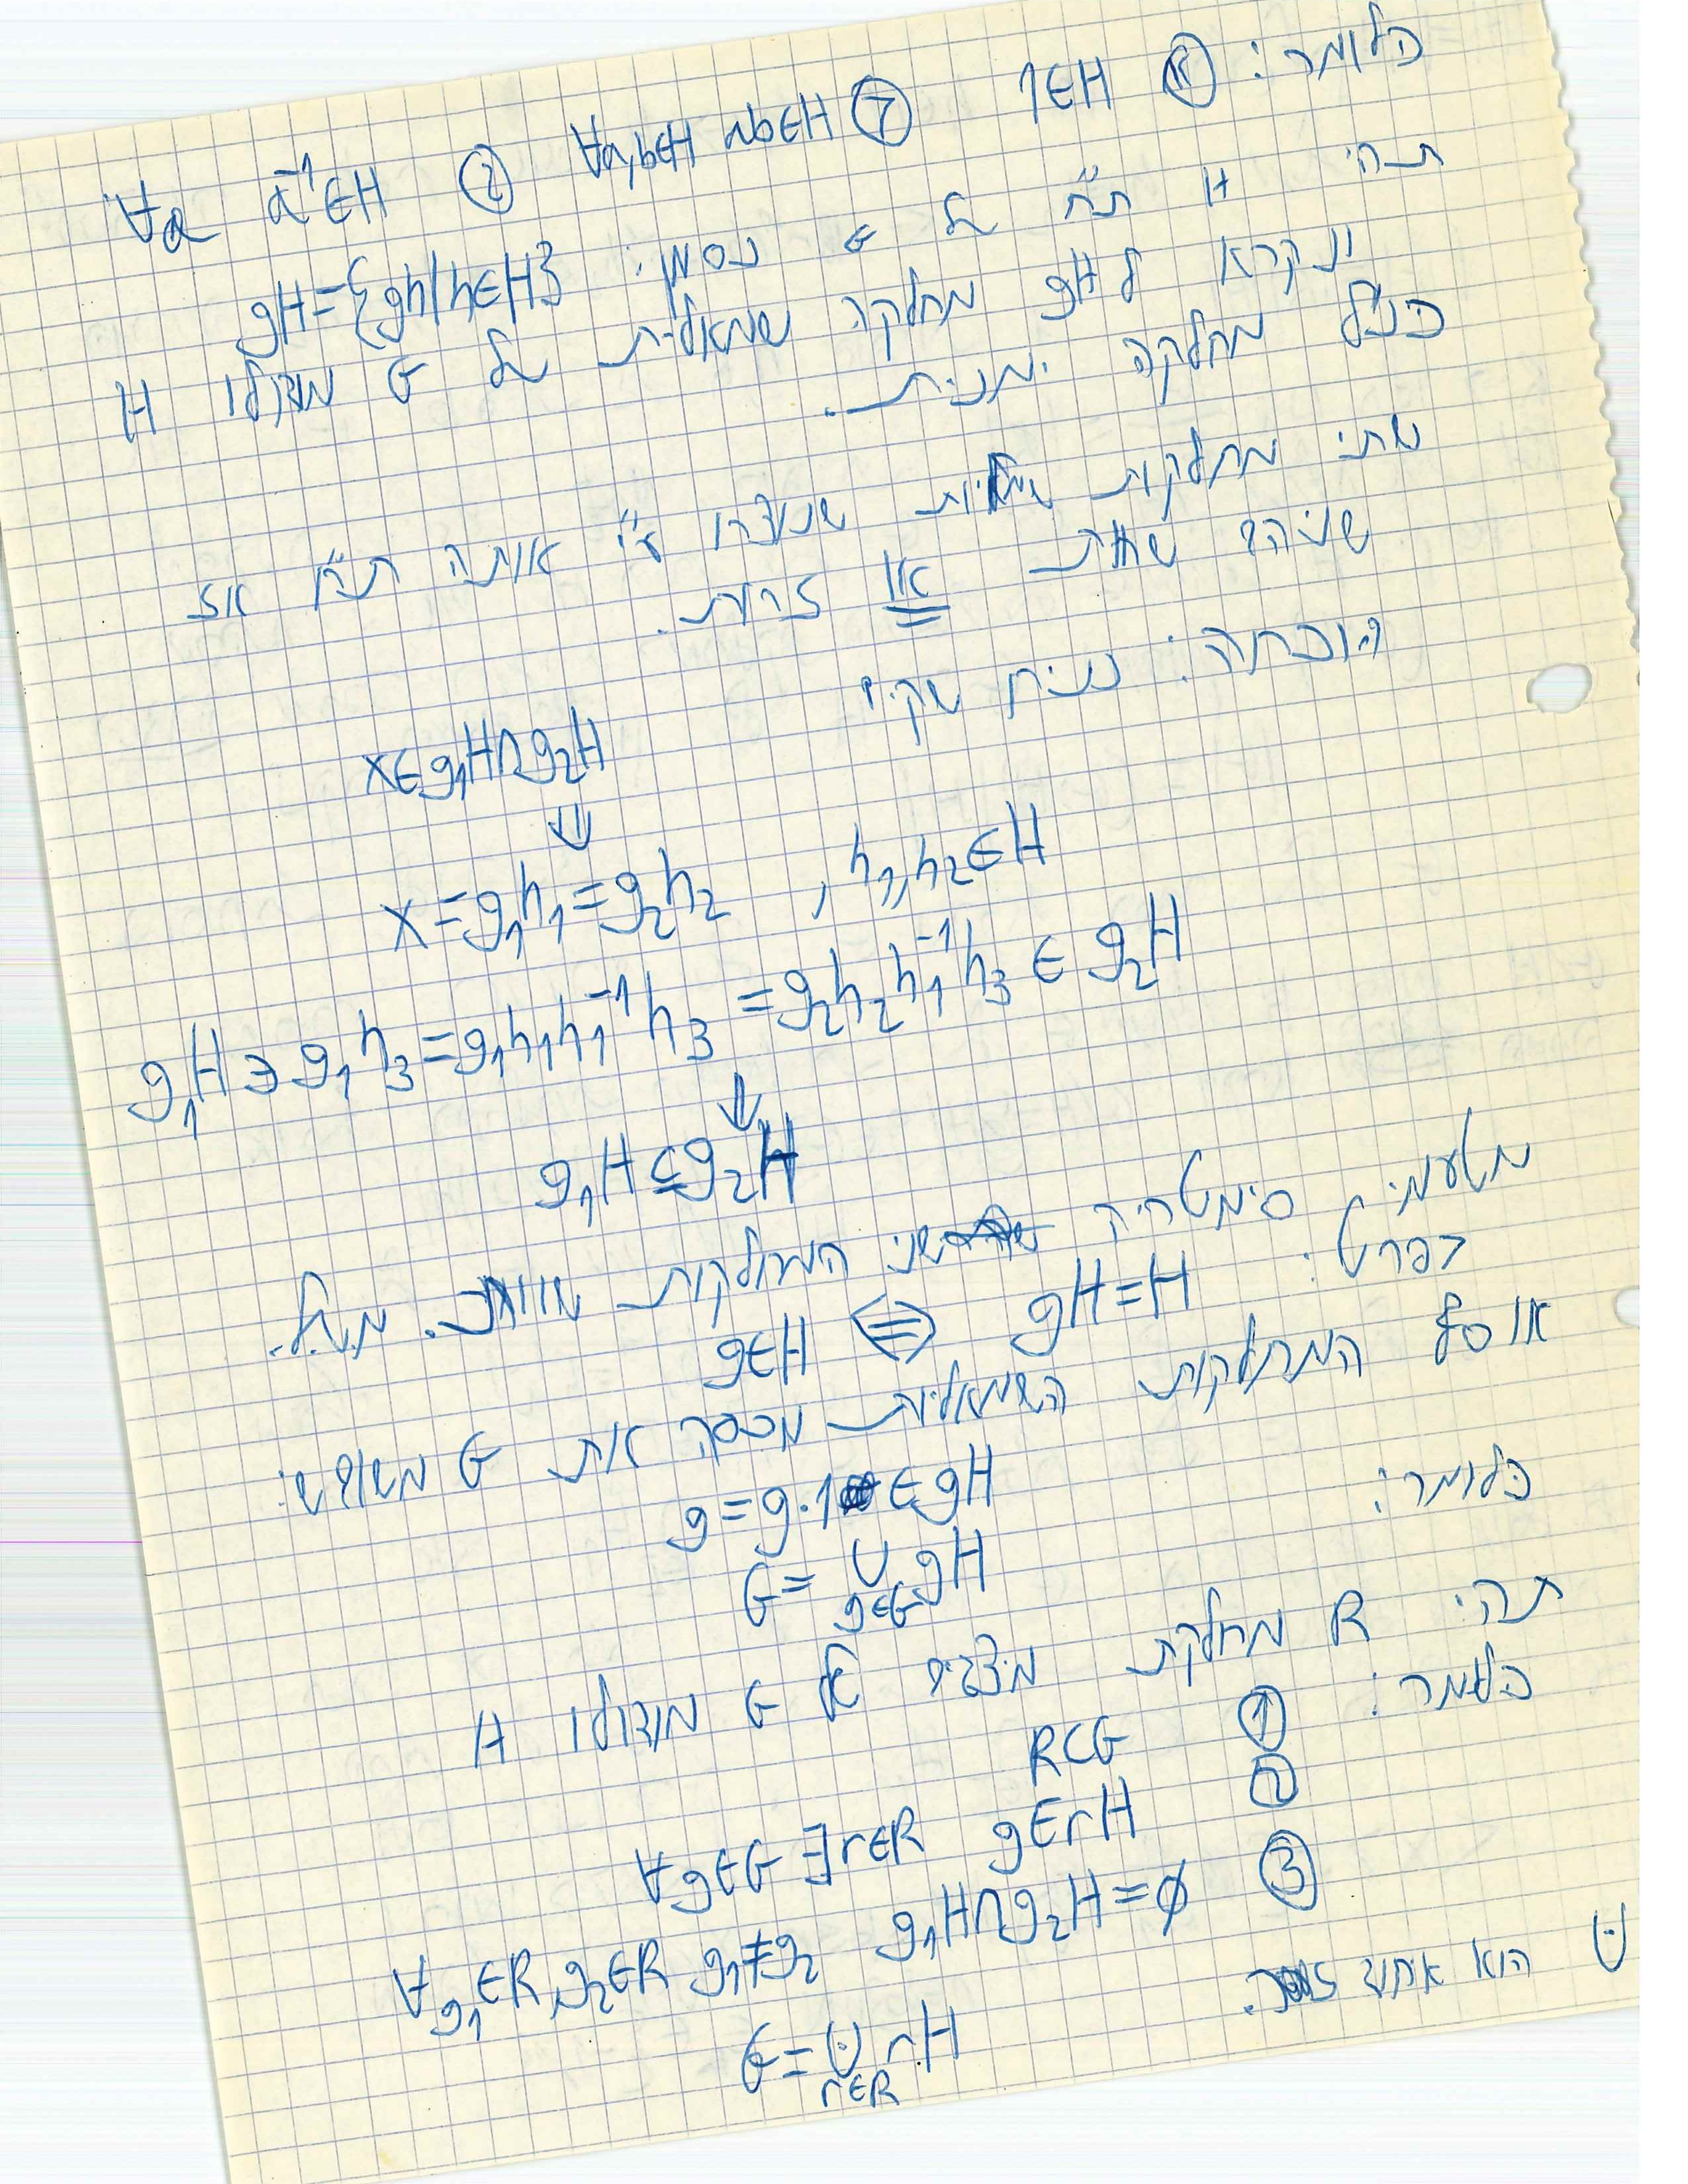 כלומר: (א) 1∈H (ב) ∀a,b∈H ab∈H (ג) ∀a a⁻¹∈H
תהי H ת"ח של G נסמן: gH={gh|h∈H}
ונקרא ל gH מחלקה שמאלית של G מודולו H
כנ"ל מחלקה ימנית.
שתי מחלקות שמאליות שנוצרו ע"י אותה ת"ח אז
שניהם שוות או זרות.
הוכחה: נניח שקיים
x∈g₁H∩g₂H
⇓
x=g₁h₁=g₂h₂ , h₁,h₂∈H
g₁H∋g₁h₃=g₁h₁h₁⁻¹h₃=g₂h₂h₁⁻¹h₃∈g₂H
⇓
g₁H⊆g₂H
מטעמי סימטריה שני המחלקות שוות. מ.ש.ל.
בפרט: gH=H ⟺ g∈H
אוסף המחלקות השמאליות מכסה את G משום ש:
g=g·1∈gH
כלומר: G=∪gH
g∈G
תהי R מחלקת מיצגים של G מודולו H
כלומר: (1) R⊂G
(2) ∀g∈G ∃r∈R g∈rH
(3) ∀g₁∈R,g₂∈R g₁≠g₂ g₁H∩g₂H=∅
⊍ הוא איחוד זר.
G=⊍rH
r∈R